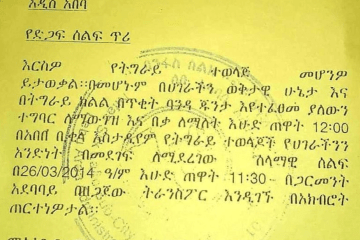 አዲስ አበባ
የድጋፍ ሰልፍ ጥሪ
እርስዎ የትግራይ ተወላጅ መሆንዎ
ይታወቃል።በመሆኑም በሀገራችን ወቅታዊ ሁኔታ እና
በትግራይ ክልል በጥቂት ባንዳ ጁንታ እየተፈፀመ ያለውን
ተግባር ለማውገዝ እና በቃ ለማለት እሁድ ጠዋት 12:00
በአበበ በቂላ እስታዲየም የትግራይ ተወላጆች የሀገራችንን
አንድነት በመደገፍ ለሚደረገው ሰላማዊ ሰልፍ
በ26/03/2014 ዓ/ም እሁድ ጠዋት 11:30 በጋርመንት
አደባባይ በተዘጋጀው ትራንስፖር እንዲገኙ በአክብሮት
ጠርተነዎታል።